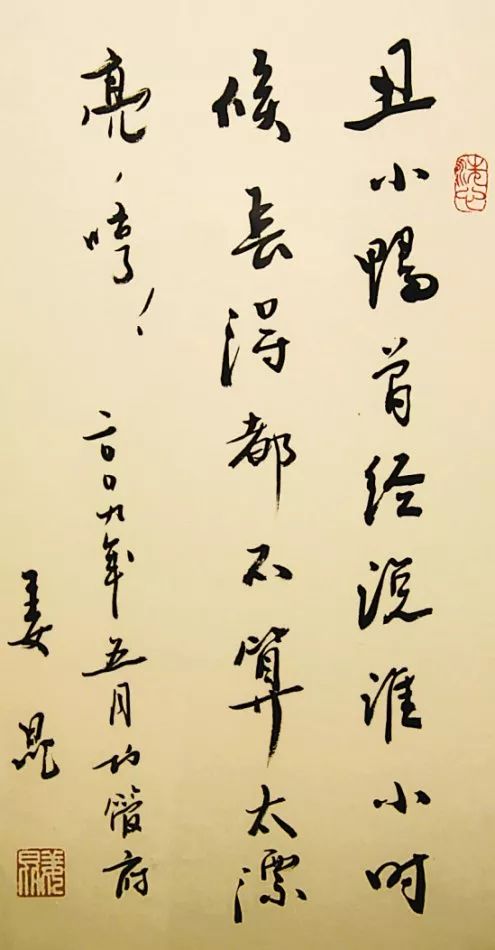 丑小鸭曾经说谁小时
候长得都不算太漂
亮，哼！
二〇〇九年五月府
姜昆
姜昆